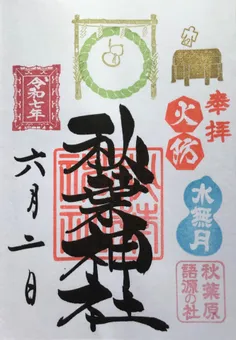 奉拝
火防
水無月
秋葉原
語源の社
秋葉神社
令和七年
六月二日